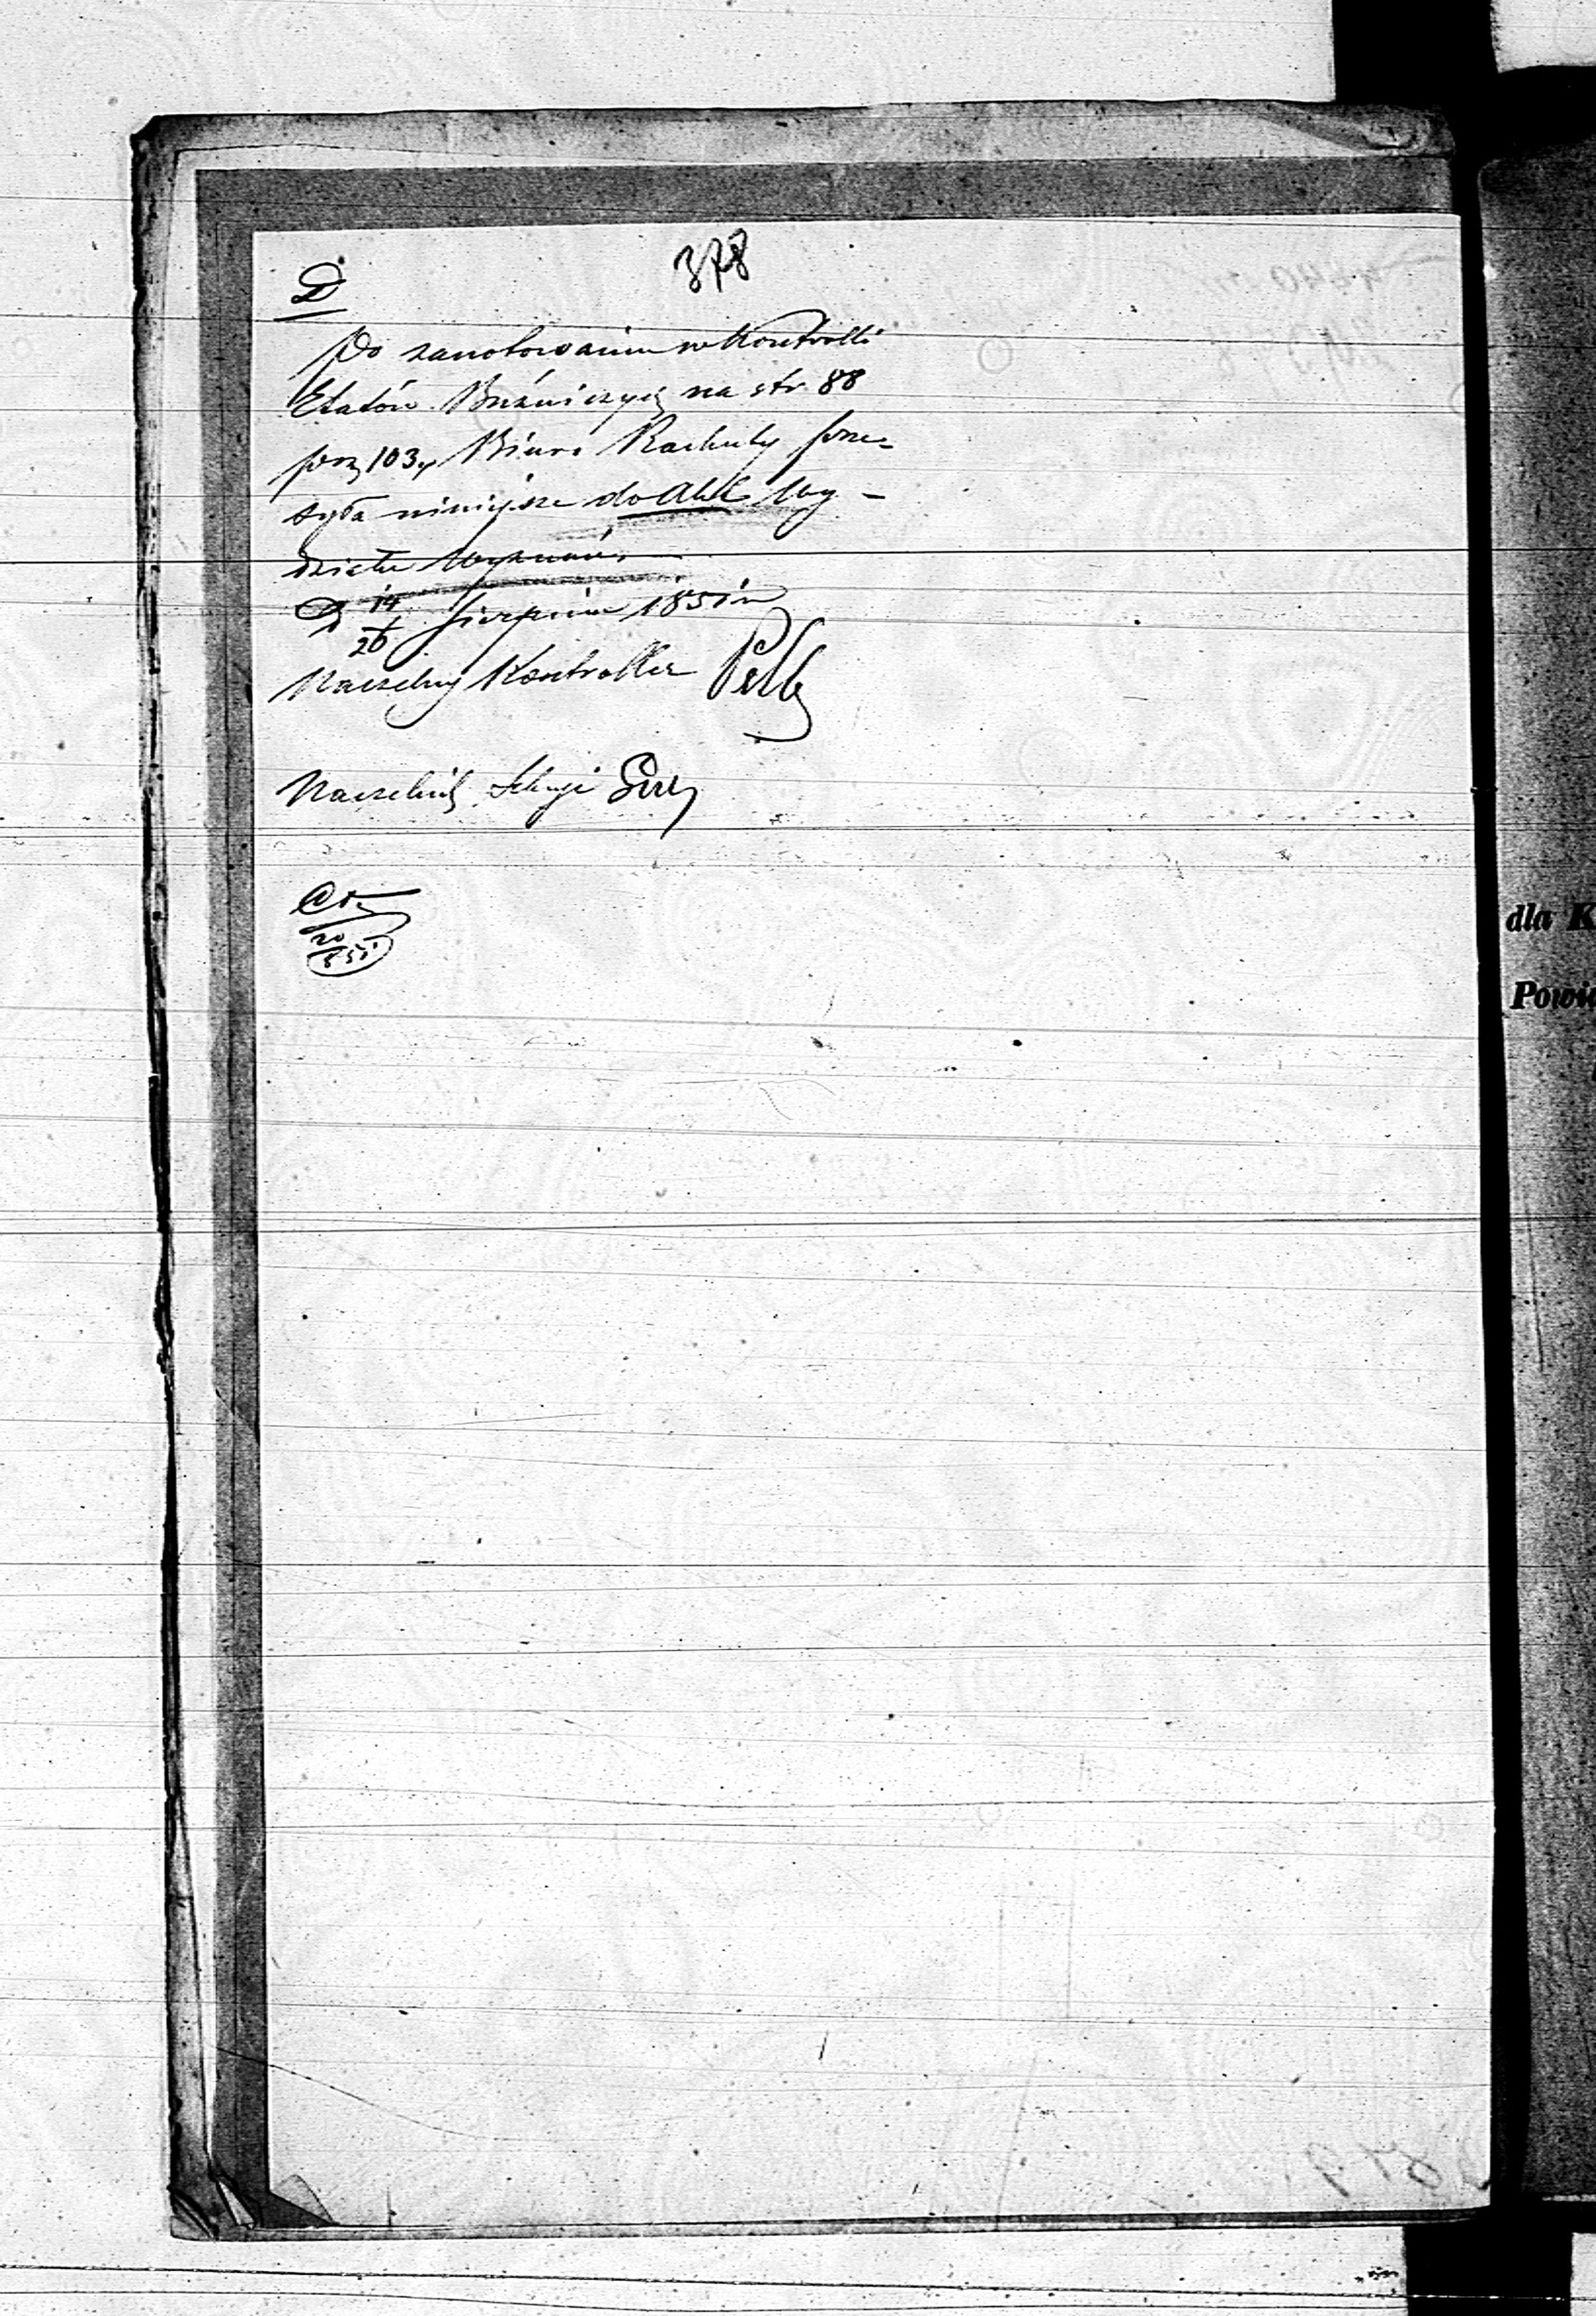 378
D
Po zanotowaniu w Kontrolli
Etatów Bużniczych na str. 88
poz. 103, Biuro Rachuby prze-
syła niniejsze do Akt Wy-
działu Wyznań.
D. 14/26 Sierpnia 1851 r.
Naczelny Kontroller
Naczelnik Sekcyi
20
851
dla K
Powia